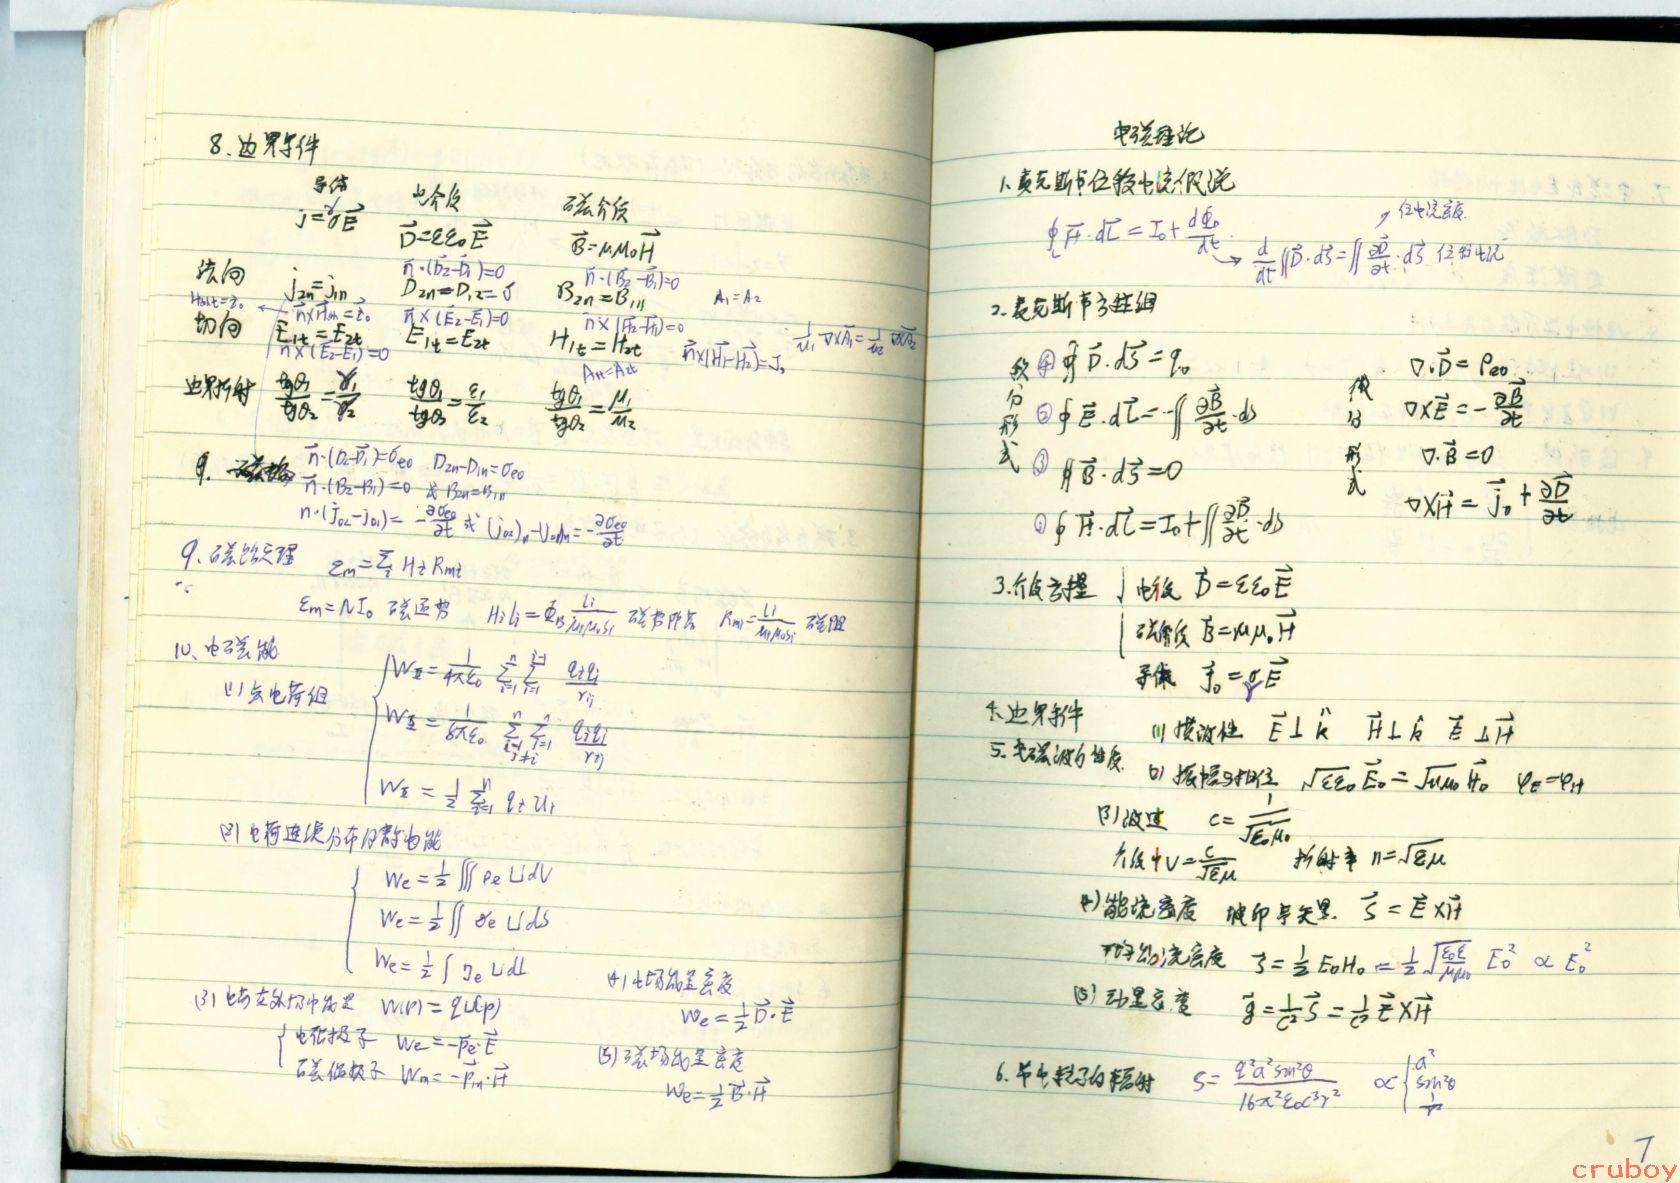 8. 边界条件
导体 电介质 磁介质
j=σE⃗ D⃗=εε₀E⃗ B⃗=μμ₀H⃗
法向 j₂ₙ=j₁ₙ n⃗·(D⃗₂-D⃗₁)=0 n⃗·(B⃗₂-B⃗₁)=0
B₂ₙ=B₁ₙ A₁=A₂
切向 E₁t=E₂t n⃗×(E⃗₂-E⃗₁)=0 n⃗×(H⃗₂-H⃗₁)=0
n⃗×(E⃗₂-E⃗₁)=0 E₁t=E₂t H₁t=H₂t
边界折射 tgθ₁/tgθ₂=γ₁/γ₂ tgθ₁/tgθ₂=ε₁/ε₂ tgθ₁/tgθ₂=μ₁/μ₂
n⃗·(D⃗₂-D⃗₁)=σe₀ D₂ₙ-D₁ₙ=σe₀
n⃗·(B⃗₂-B⃗₁)=0 或 B₂ₙ=B₁ₙ
n·(j₀₂-j₀₁)=-∂σe₀/∂t 或 (j₀₂)ₙ-(j₀₁)ₙ=-∂σe₀/∂t
9、磁路定理
εm=NI₀ HiLi=ΦB Li/μiμ₀Si Rmi=Li/μiμ₀Si 磁阻
10、电磁能
(1)点电荷组 W互=1/4πε₀ Σ(i=1,n)Σ(j=1,i-1) qiqj/rij
W互=1/8πε₀ Σ(i=1,n)Σ(j=1,n; j≠i) qiqj/rij
W互=1/2 Σ(i=1,n) qiUi
(2)电荷连续分布的静电能
We=1/2∭ρeUdV
We=1/2∬σeUdS
We=1/2∫ηeUdl
(3)电荷在外场中能量 W(P)=qU(P)
电偶极子 We=-P⃗e·E⃗
磁偶极子 Wm=-P⃗m·H⃗
(4)电场能量密度
We=1/2D⃗·E⃗
(5)磁场能量密度
We=1/2B⃗·H⃗
电磁理论
1.麦克斯韦位移电流假说
∮H⃗·dL⃗=I₀+dΦD/dt
d/dt∬D⃗·dS⃗=∬∂D⃗/∂t·dS⃗ 位移电流
2.麦克斯韦方程组
积分形式 ① ∯D⃗·dS⃗=q₀
② ∮E⃗·dL⃗=-∬∂B⃗/∂t·dS
③ ∯B⃗·dS⃗=0
④ ∮H⃗·dL⃗=I₀+∬∂D⃗/∂t·dS
微分形式 ∇·D⃗=ρe₀
∇×E⃗=-∂B⃗/∂t
∇·B⃗=0
∇×H⃗=j⃗₀+∂D⃗/∂t
3.介质方程 电介质 D⃗=εε₀E⃗
磁介质 B⃗=μμ₀H⃗
导体 j⃗₀=σE⃗
4.边界条件
5.电磁波的性质 (1)横波性 E⃗⊥k̂ H⃗⊥k̂ E⃗⊥H⃗
(2)振幅与相位 √εε₀E⃗₀=√μμ₀H⃗₀ φE=φH
(3)波速 c=1/√ε₀μ₀
介质中v=c/√εμ 折射率 n=√εμ
(4)能流密度 坡印亭矢量 S⃗=E⃗×H⃗
平均能流密度 S̄=1/2E₀H₀=1/2√(ε₀ε/μμ₀) E₀² ∝E₀²
(5)动量密度 g⃗=1/c²S⃗=1/c²E⃗×H⃗
6.带电粒子的辐射 S=q²a²sin²θ/16π²ε₀c³r² ∝{a² sin²θ 1/r²
7
cruboy